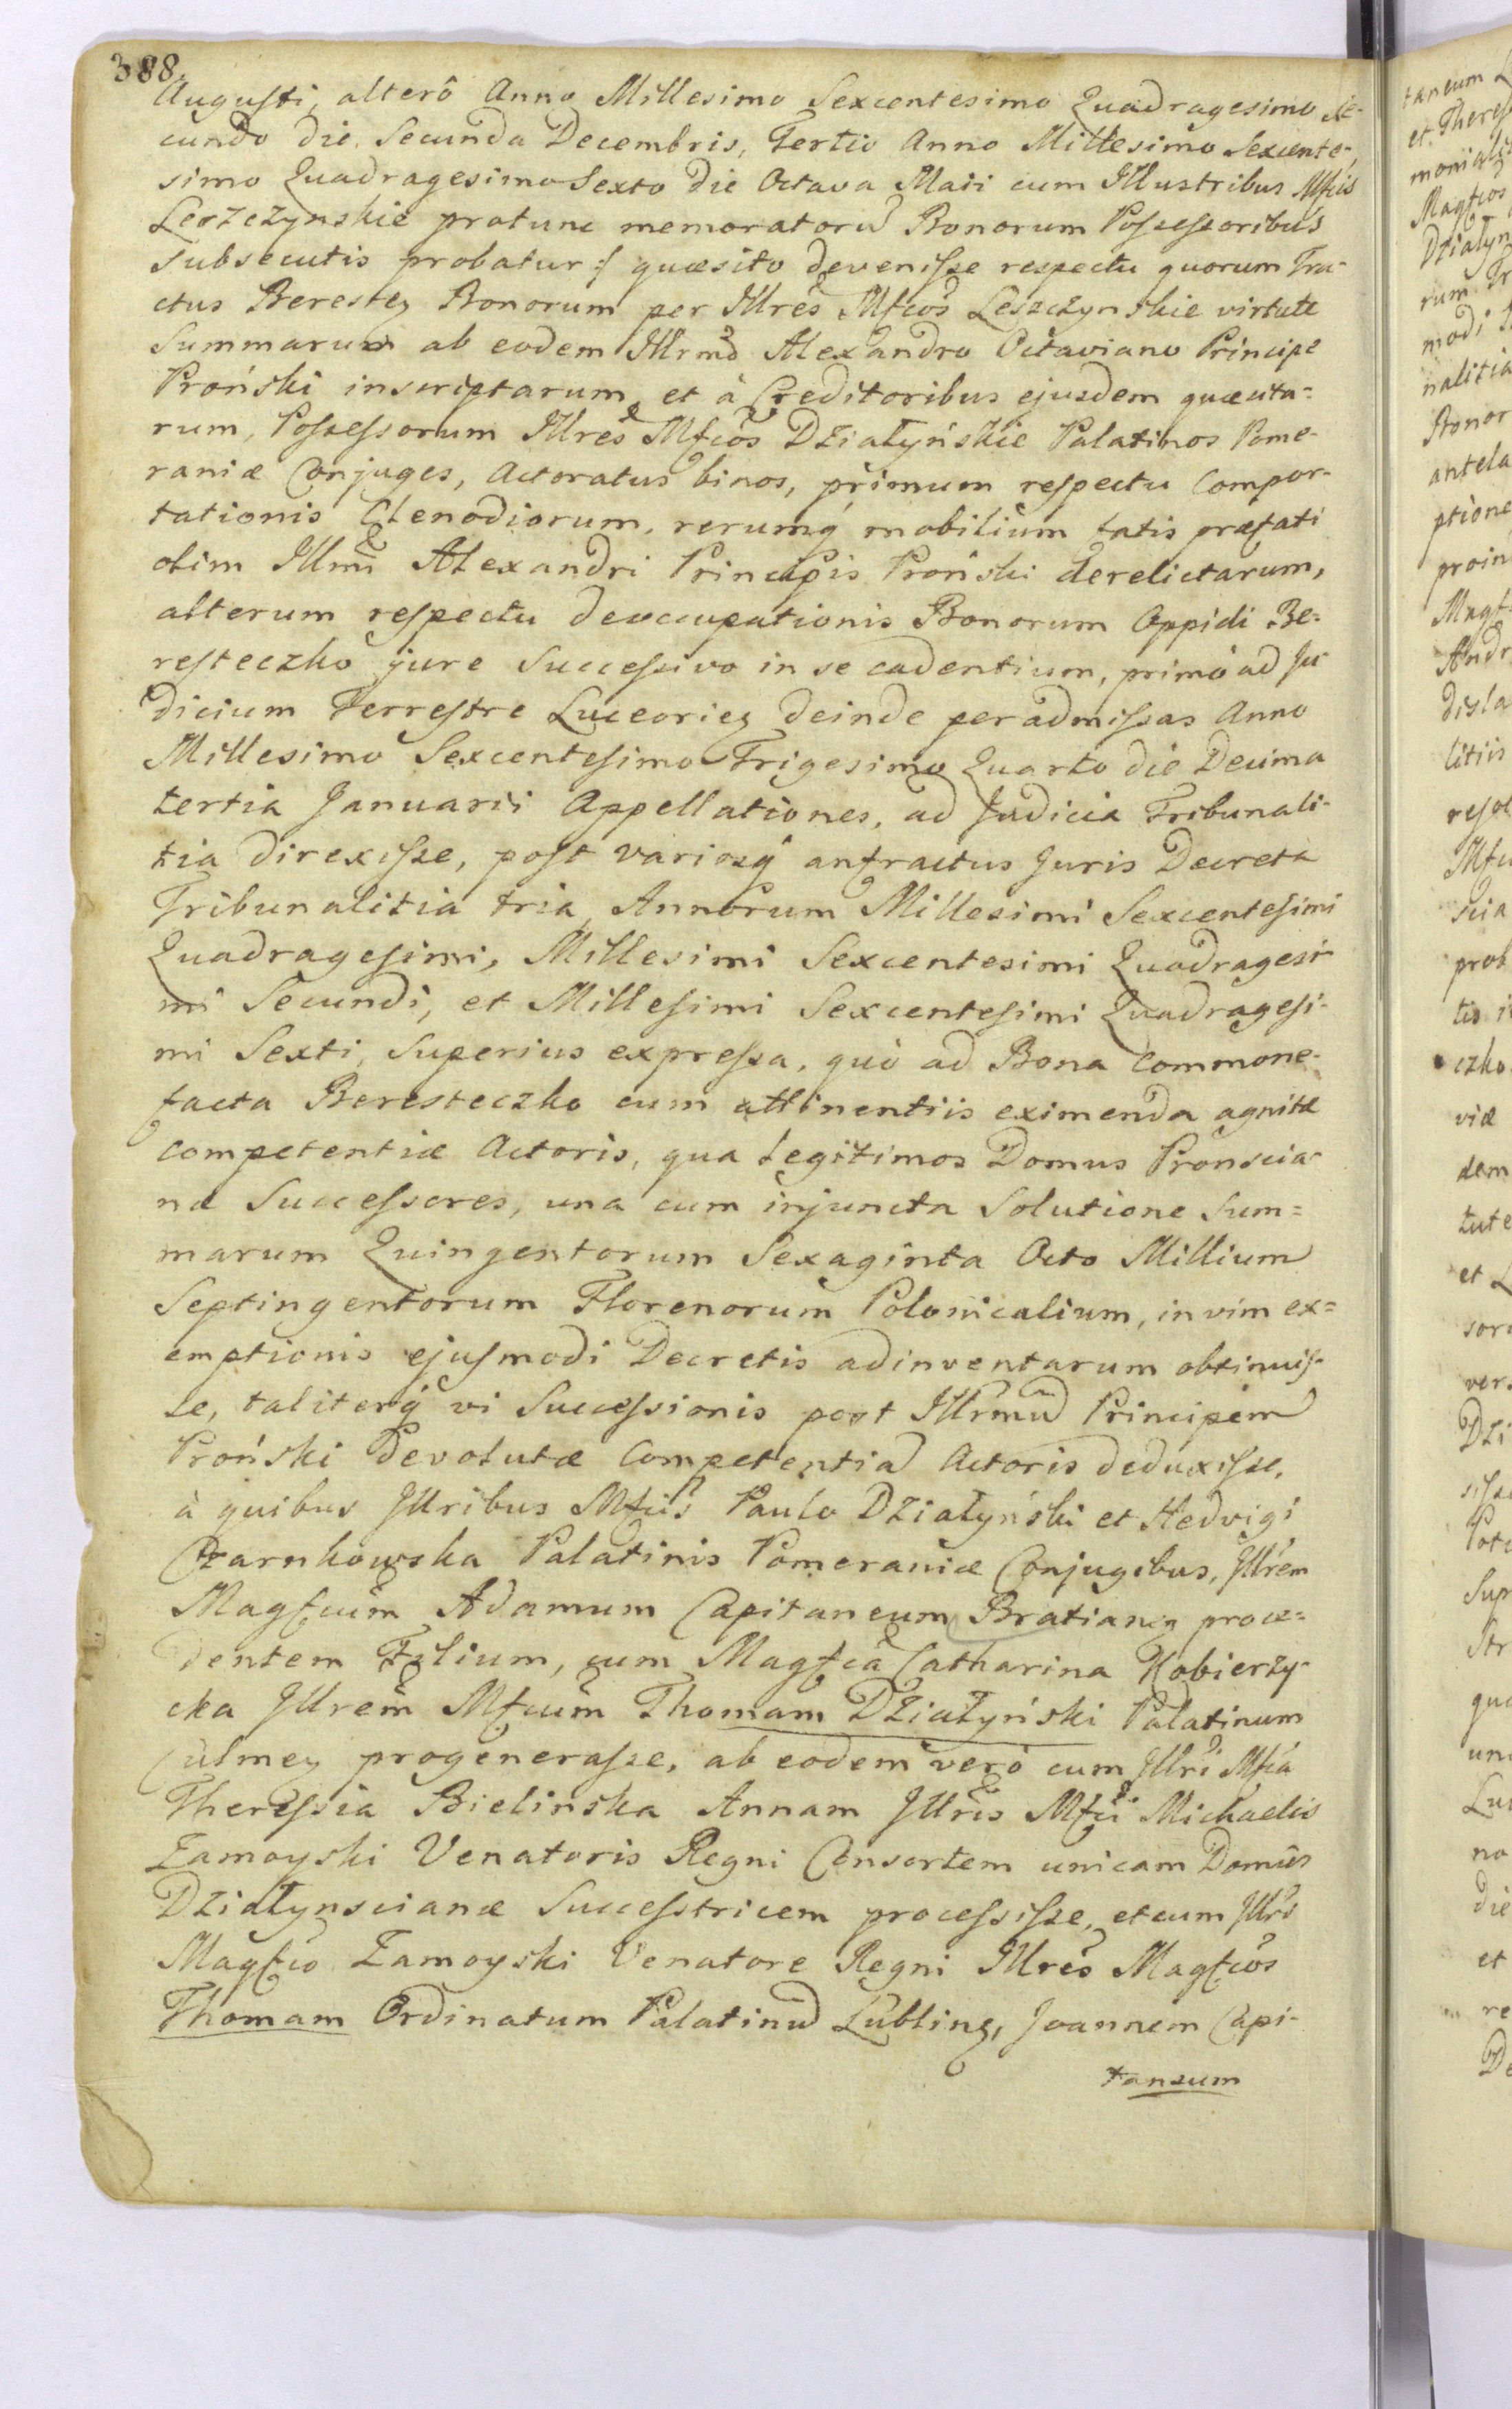 388.
Augusti, alterô Anno Millesimo Sexcentesimo Quadragesimo Se-
cundo die Secunda Decembris, Tertio Anno Millesimo Sexcente-
simo Quadragesimo Sexto die Octava Maii cum Illustribus Mfcis
Leszczynskie protunc memoratorũ Bonorum Possessoribus
subsecutis probatur :/ quæsito devenisse respectu quorum Tra-
ctus Berestey Bonorum per Illres Mfcos Leszczynskie virtute
Summarum ab eodem Illrmo Alexandro Octaviano Principe
Proński inscriptarum, et à Creditoribus ejusdem quæsita=
rum, Possessorum Illres Mfcos Działyńskie Palatinos Pome-
raniæ Conjuges, Actoratus binos, primum respectu Compor-
tationis Clenodiorum, rerumq mobilium fatis præfati
olim Illmi Alexandri Principis Proński derelictarum,
alterum respectu deoccupationis Bonorum Oppidi Be-
resteczko jure Successivo in se cadentium, primo ad Ju-
dicium Terrestre Luceoriey deinde per admissas Anno
Millesimo Sexcentesimo Trigesimo Quarto die Decima
tertia Januarii Appellationes, ad Judicia Tribunali-
tia direxisse, post variosq anfractus Juris Decreta
Tribunalitia tria, Annorum Millesimi Sexcentesimi
Quadragesimi, Millesimi Sexcentesimi Quadragesi-
mi Secundi, et Millesimi Sexcentesimi Quadragesi-
mi Sexti, superius expressa, quò ad Bona Commone-
facta Beresteczko cum attinentiis eximenda agnitæ
competentiæ Actoris, qua legitimos Domus Pronscia-
næ Successores, una cum injuncta Solutione Sum=
marum Quingentorum Sexaginta Octo Millium
Septingentorum Florenorum Polonicalium, in vim ex=
emptionis ejusmodi Decretis adinventarum obtinuis-
se, taliterq vi Successionis post Illrmũ Principem
Proński devolutæ Competentiã Actoris deduxisse,
à quibus Illribus Mfcis Paulo Działyński et Hedvigi
Czarnkowska Palatinis Pomeraniæ Conjugibus, Illrem
Magfcum Adamum Capitaneum Bratianey proce=
dentem Filium, cum Magfca Catharina Kobierzy-
cka Illrem Mfcum Thomam Działyński Palatinum
Culmey progenerasse, ab eodem verò cum Illri Mfca
Theressia Bielinska Annam Illris Mfci Michaelis
Zamoyski Venatoris Regni Consortem unicam Domûs
Działynscianæ Successtricem processisse, et cum Illri
Magfco Zamoyski Venatore Regni Illres Magfcos
Thomam Ordinatum Palatinũ Lubliney, Joannem Capi-
taneum